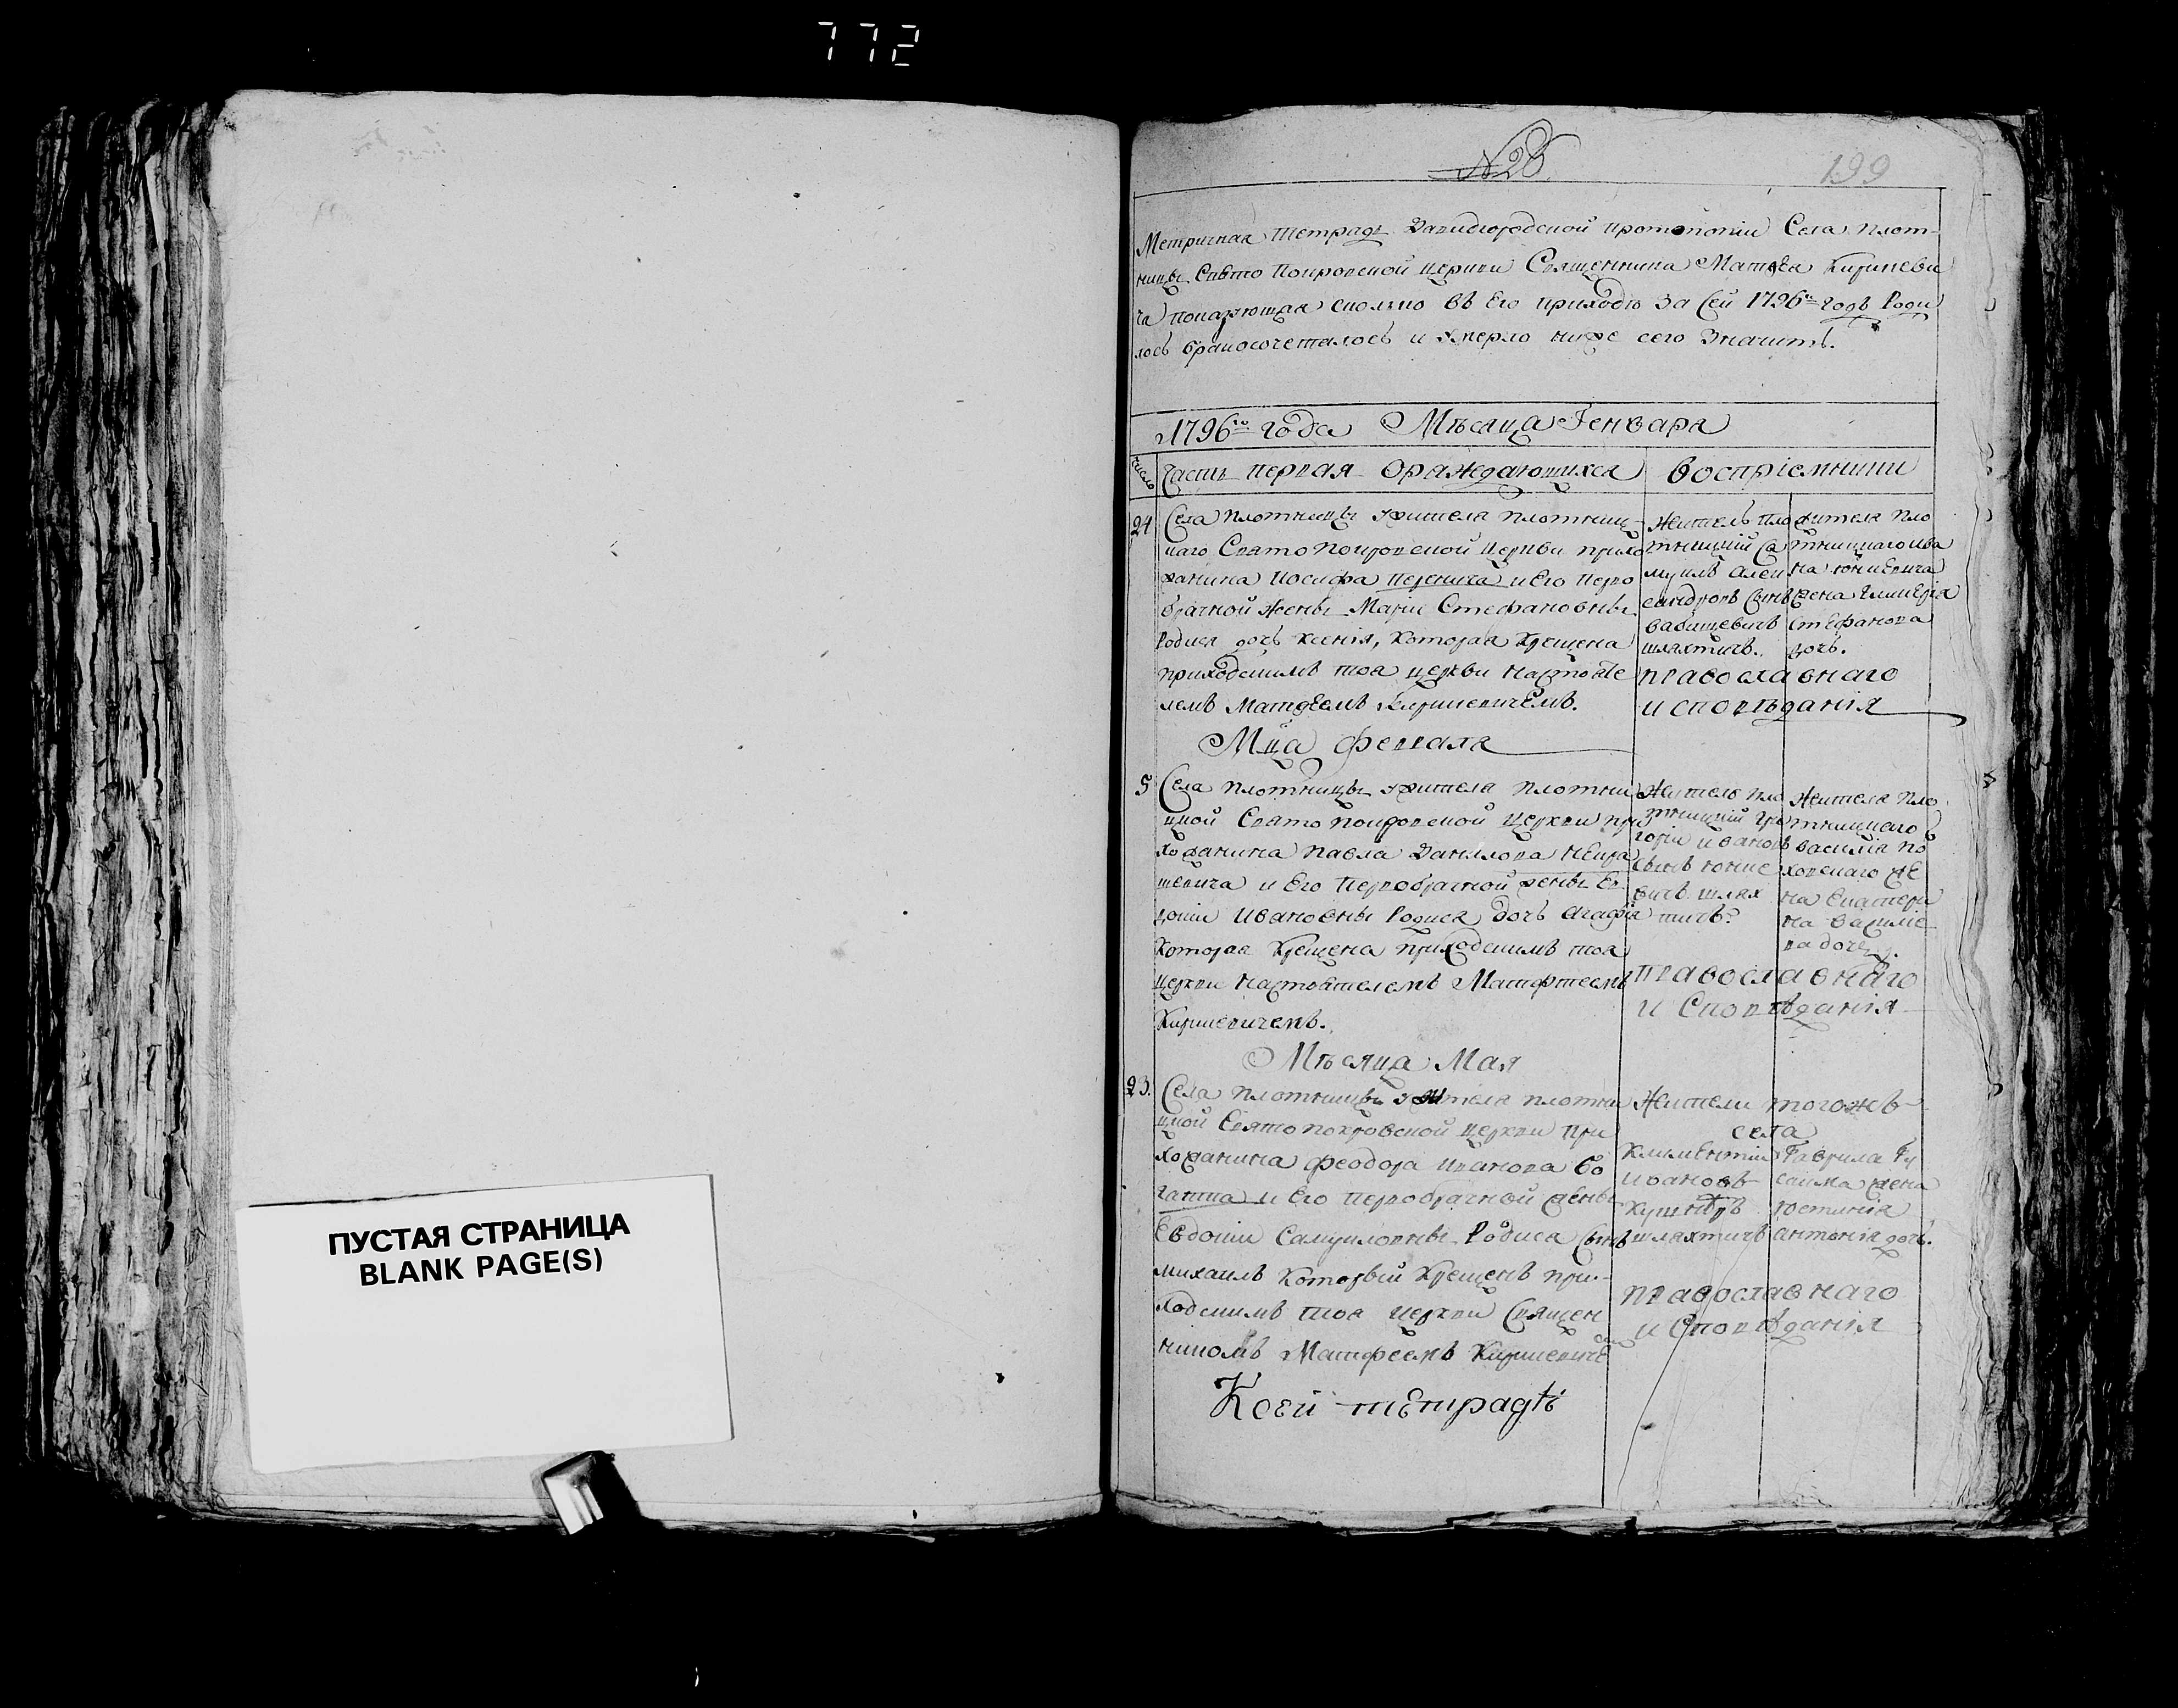 772
ПУСТАЯ СТРАНИЦА
BLANK PAGE(S)
№ 28
199
Метричная тетрадь Давидгородской протопопіи Села Плот-
ницы Свято Покровской церкви Священника Матфея Кирицеви
ча показующая сколько въ Его приходѣ за Сей 1796й годъ Роди
лось бракосочеталось и умерло ниже сего значитъ.
1796го года Мѣсяца Генваря
Число
Часть первая ораждающихся
воспріемники
24
Села Плотницы жителя Плотниц-
каго Свято Покровской церкви прихо
жанина Иосифа и Его перво
брачной жены Маріи Стефановны
Родися дочь Ксенія, которая крещена
приходскимъ тоя церкви настояте
лемъ Матфеемъ
Житель Пло
тницкій Са
муилъ Алек
сандровъ Сынъ
шляхтичъ.
жителя Пло
тницкаго Ива
на
жена
Стефанова
дочь.
православнаго
исповѣданія
Мца февраля
5
Села Плотницы жителя Плотни
цкой Свято Покровской церкви при
хожанина Павла Данилова
и Его первобрачной жены Ев
докіи Ивановны Родися дочь Агафія
которая крещена приходскимъ тоя
церкви настоятелемъ Матфтеемъ
Житель Пло
тницкій Гри
горій Ивановъ
Сынъ
шлях
тичъ
Жителя Пло
тницкаго
Василія По
жаго же
на Екатери
на Василіе
ва дочь.
православнаго
и Сповѣданія
Мѣсяца Мая
23.
Села Плотницы жителя Плотни
цкой Святопокровской церкви При
хожанина Феодора Иванова Бо
и Его первобрачной жены
Евдокіи Самуиловны Родися Сынъ
Михаилъ который крещенъ при-
ходскимъ тоя церкви Священ
никомъ Матфеемъ
Жители тогожъ
села
Климентій
Ивановъ
шляхтичъ
Гаврила
жена
Юстинія
Антонія дочь.
православнаго
и Сповѣданія
Ксей тетрадѣ